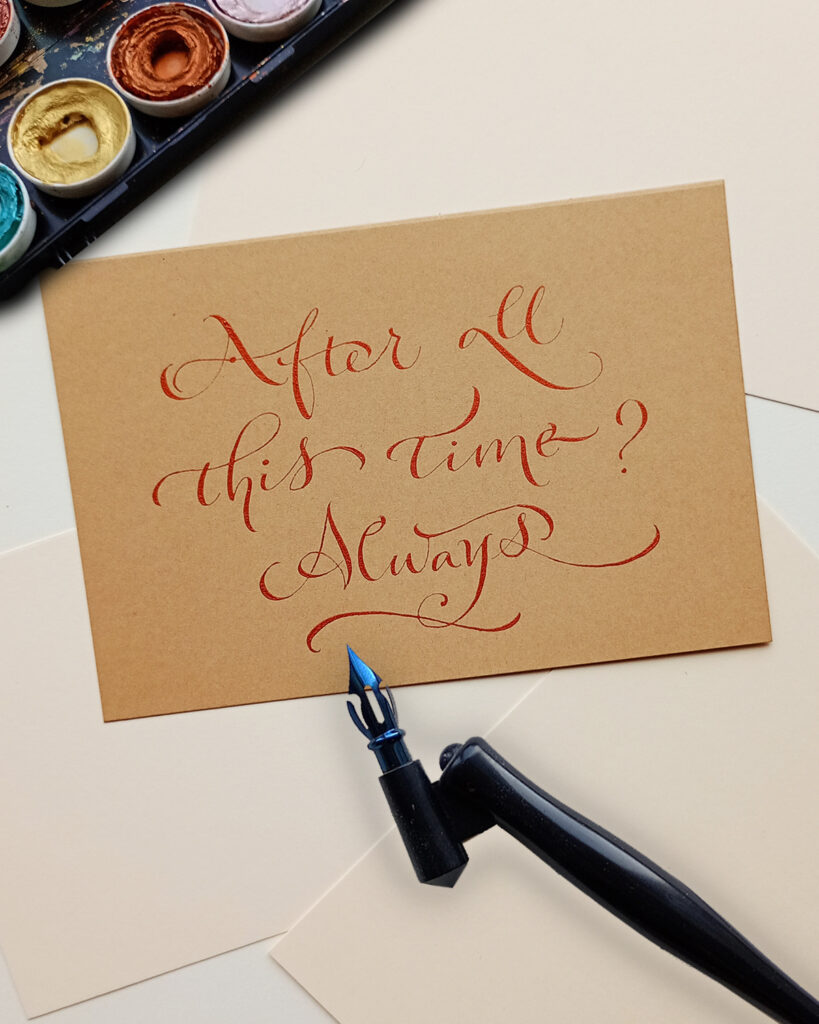 After all
this time?
Always